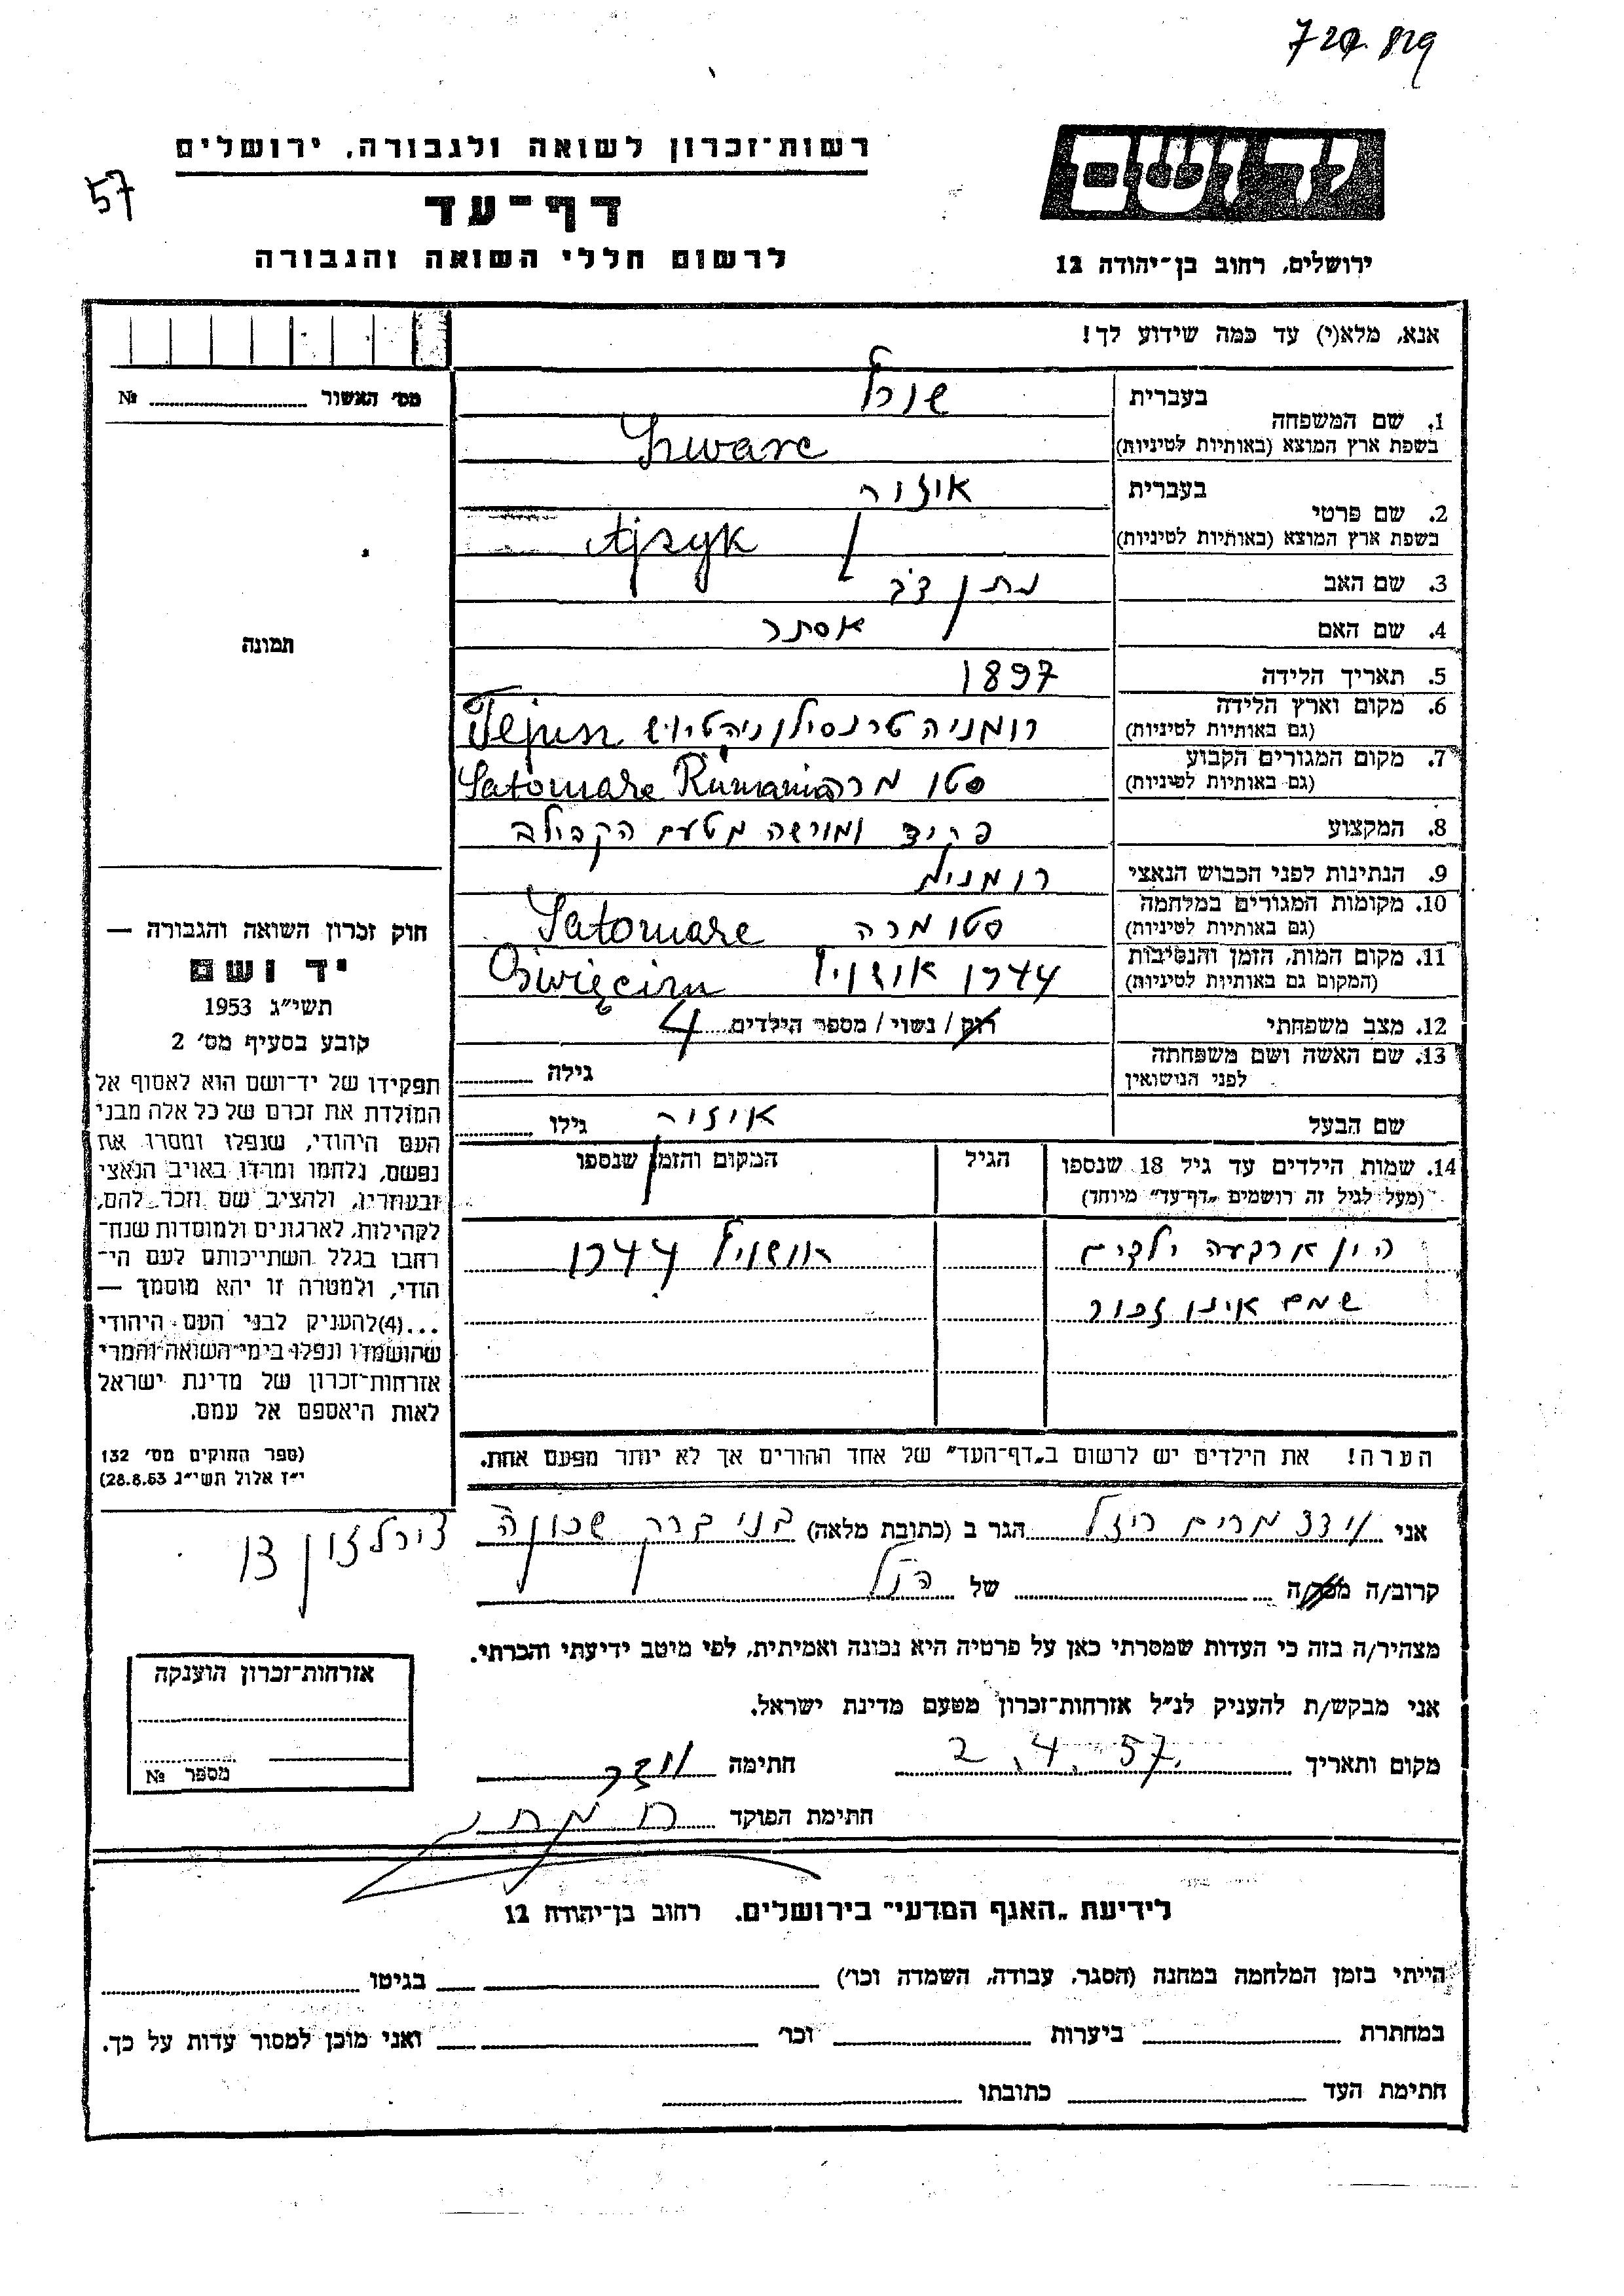 729 829
רשות־זכרון לשואה ולגבורה, ירושלים
57
דף־עד
לרשום חללי השואה והגבורה
יד ושם
ירושלים, רחוב בן־יהודה 12
אנא, מלא(י) עד כמה שידוע לך!
מס׳ האשור № 
1. שם המשפחה
בעברית
בשפת ארץ המוצא (באותיות לטיניות)
2. שם פרטי
בעברית
אייזיק
בשפת ארץ המוצא (באותיות לטיניות)
Ajzyk
3. שם האב נתן דב
4. שם האם אסתר
5. תאריך הלידה 1897
6. מקום וארץ הלידה רומניה
(גם באותיות לטיניות)
7. מקום המגורים הקבוע סטו מרה Satomare Rumania
(גם באותיות לטיניות)
8. המקצוע ומורשה מטעם
9. הנתינות לפני הכבוש הנאצי רומנית
10. מקומות המגורים במלחמה סטו מרה Satomare
(גם באותיות לטיניות)
11. מקום המות, הזמן והנסיבות 1944 Oświęcim
(המקום גם באותיות לטיניות)
12. מצב משפחתי רוק / נשוי / מספר הילדים 4
13. שם האשה ושם משפחתה
לפני הנישואין
גילה
שם הבעל
גילו
תמונה
חוק זכרון השואה והגבורה —
יד ושם
תשי״ג 1953
קובע בסעיף מס׳ 2
תפקידו של יד־ושם הוא לאסוף אל
המולדת את זכרם של כל אלה מבני
העם היהודי, שנפלו ומסרו את
נפשם, נלחמו ומרדו באויב הנאצי
ובעוזריו, ולהציב שם וזכר להם,
לקהילות, לארגונים ולמוסדות שנח־
רבו בגלל השתייכותם לעם הי־
הודי, ולמטרה זו יהא מוסמך —
...(4)להעניק לבני העם היהודי
שהושמדו ונפלו בימי השואה והמרי
אזרחות־זכרון של מדינת ישראל
לאות היאספם אל עמם.
(ספר החוקים מס׳ 132
י״ז אלול תשי״ג 28.8.53)
14. שמות הילדים עד גיל 18 שנספו
(מעל לגיל זה רושמים „דף־עד״ מיוחד)
הגיל
המקום והזמן שנספו
היו ארבעה ילדים 1944
שמם אינו זכור
הערה! את הילדים יש לרשום ב„דף־העד״ של אחד ההורים אך לא יותר מפעם אחת.
אני מרים הגר ב (כתובת מלאה) בני ברק שכונה
קרוב/ה מכר/ה של הנ״ל
מצהיר/ה בזה כי העדות שמסרתי כאן על פרטיה היא נכונה ואמיתית, לפי מיטב ידיעתי והכרתי.
אני מבקש/ת להעניק לנ״ל אזרחות־זכרון מטעם מדינת ישראל.
מקום ותאריך 2.4.57 חתימה
חתימת הפוקד
אזרחות־זכרון הוענקה
מספר №
לידיעת „האגף המדעי״ בירושלים, רחוב בן־יהודה 12
הייתי בזמן המלחמה במחנה (הסגר, עבודה, השמדה וכו׳) בגיטו
במחתרת ביערות וכו׳ ואני מוכן למסור עדות על כך.
חתימת העד כתובתו